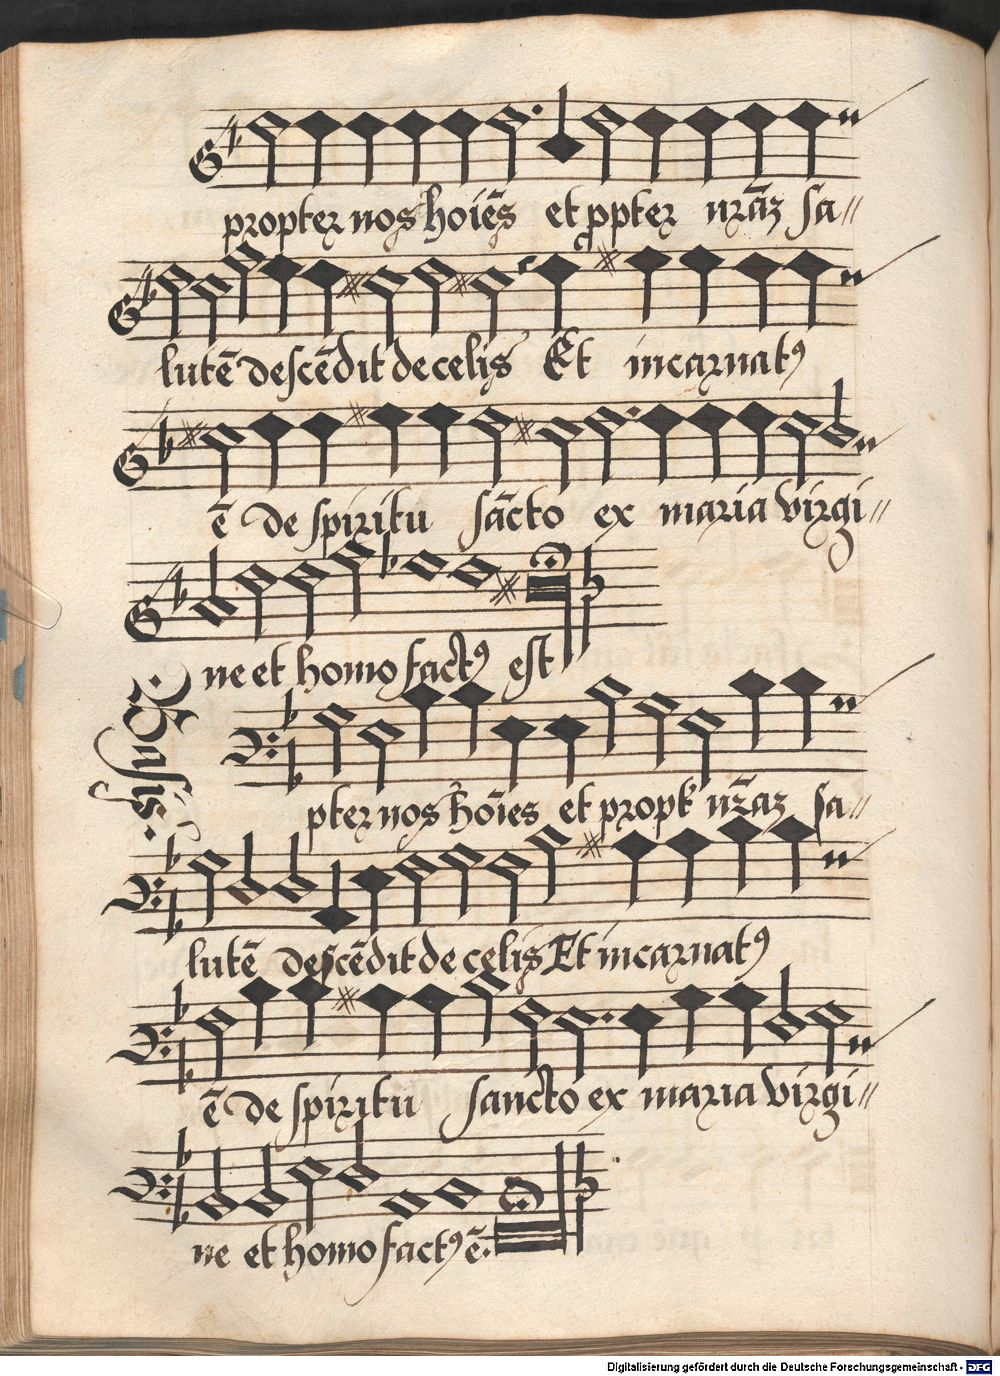 propter nos hoiēs et ppter nrāz sa//
lutē descēdit de celis Et incarnatꝯ
ē de spiritu sācto ex maria virgi//
ne et homo factꝯ est
Basis.
pter nos hōies et propt nrāz sa//
lutē descēdit de celis Et incarnatꝯ
ē de spiritu sancto ex maria virgi//
ne et homo factꝯ ē.
Digitalisierung gefördert durch die Deutsche Forschungsgemeinschaft - DFG